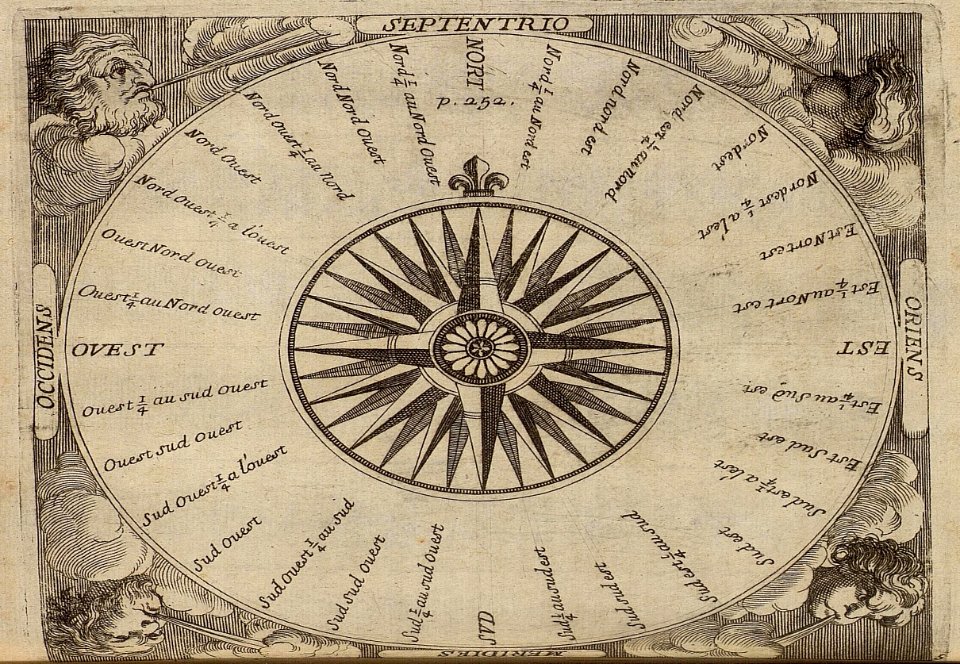 SEPTENTRIO
NORT
p. 252.
Nord 1/4 au Nord est
Nord nord est
Nord est 1/4 au nord
Nord est
Nord est 1/4 a l'est
Est Nort est
Est 1/4 au Nort est
EST
ORIENS
Est 1/4 au Sud est
Est Sud est
Sud est 1/4 a l'est
Sud est
Sud est 1/4 au sud
Sud sud est
SUD
MERIDIES
Sud 1/4 au sud Ouest
Sud Sud Ouest
Sud Ouest 1/4 au sud
Sud Ouest
Sud Ouest 1/4 a l'ouest
Ouest sud Ouest
Ouest 1/4 au sud Ouest
OVEST
OCCIDENS
Ouest 1/4 au Nord ouest
Ouest Nord Ouest
Nord Ouest 1/4 a l'ouest
Nord Ouest
Nord Ouest 1/4 au nord
Nord Nord Ouest
Nord 1/4 au Nord Ouest